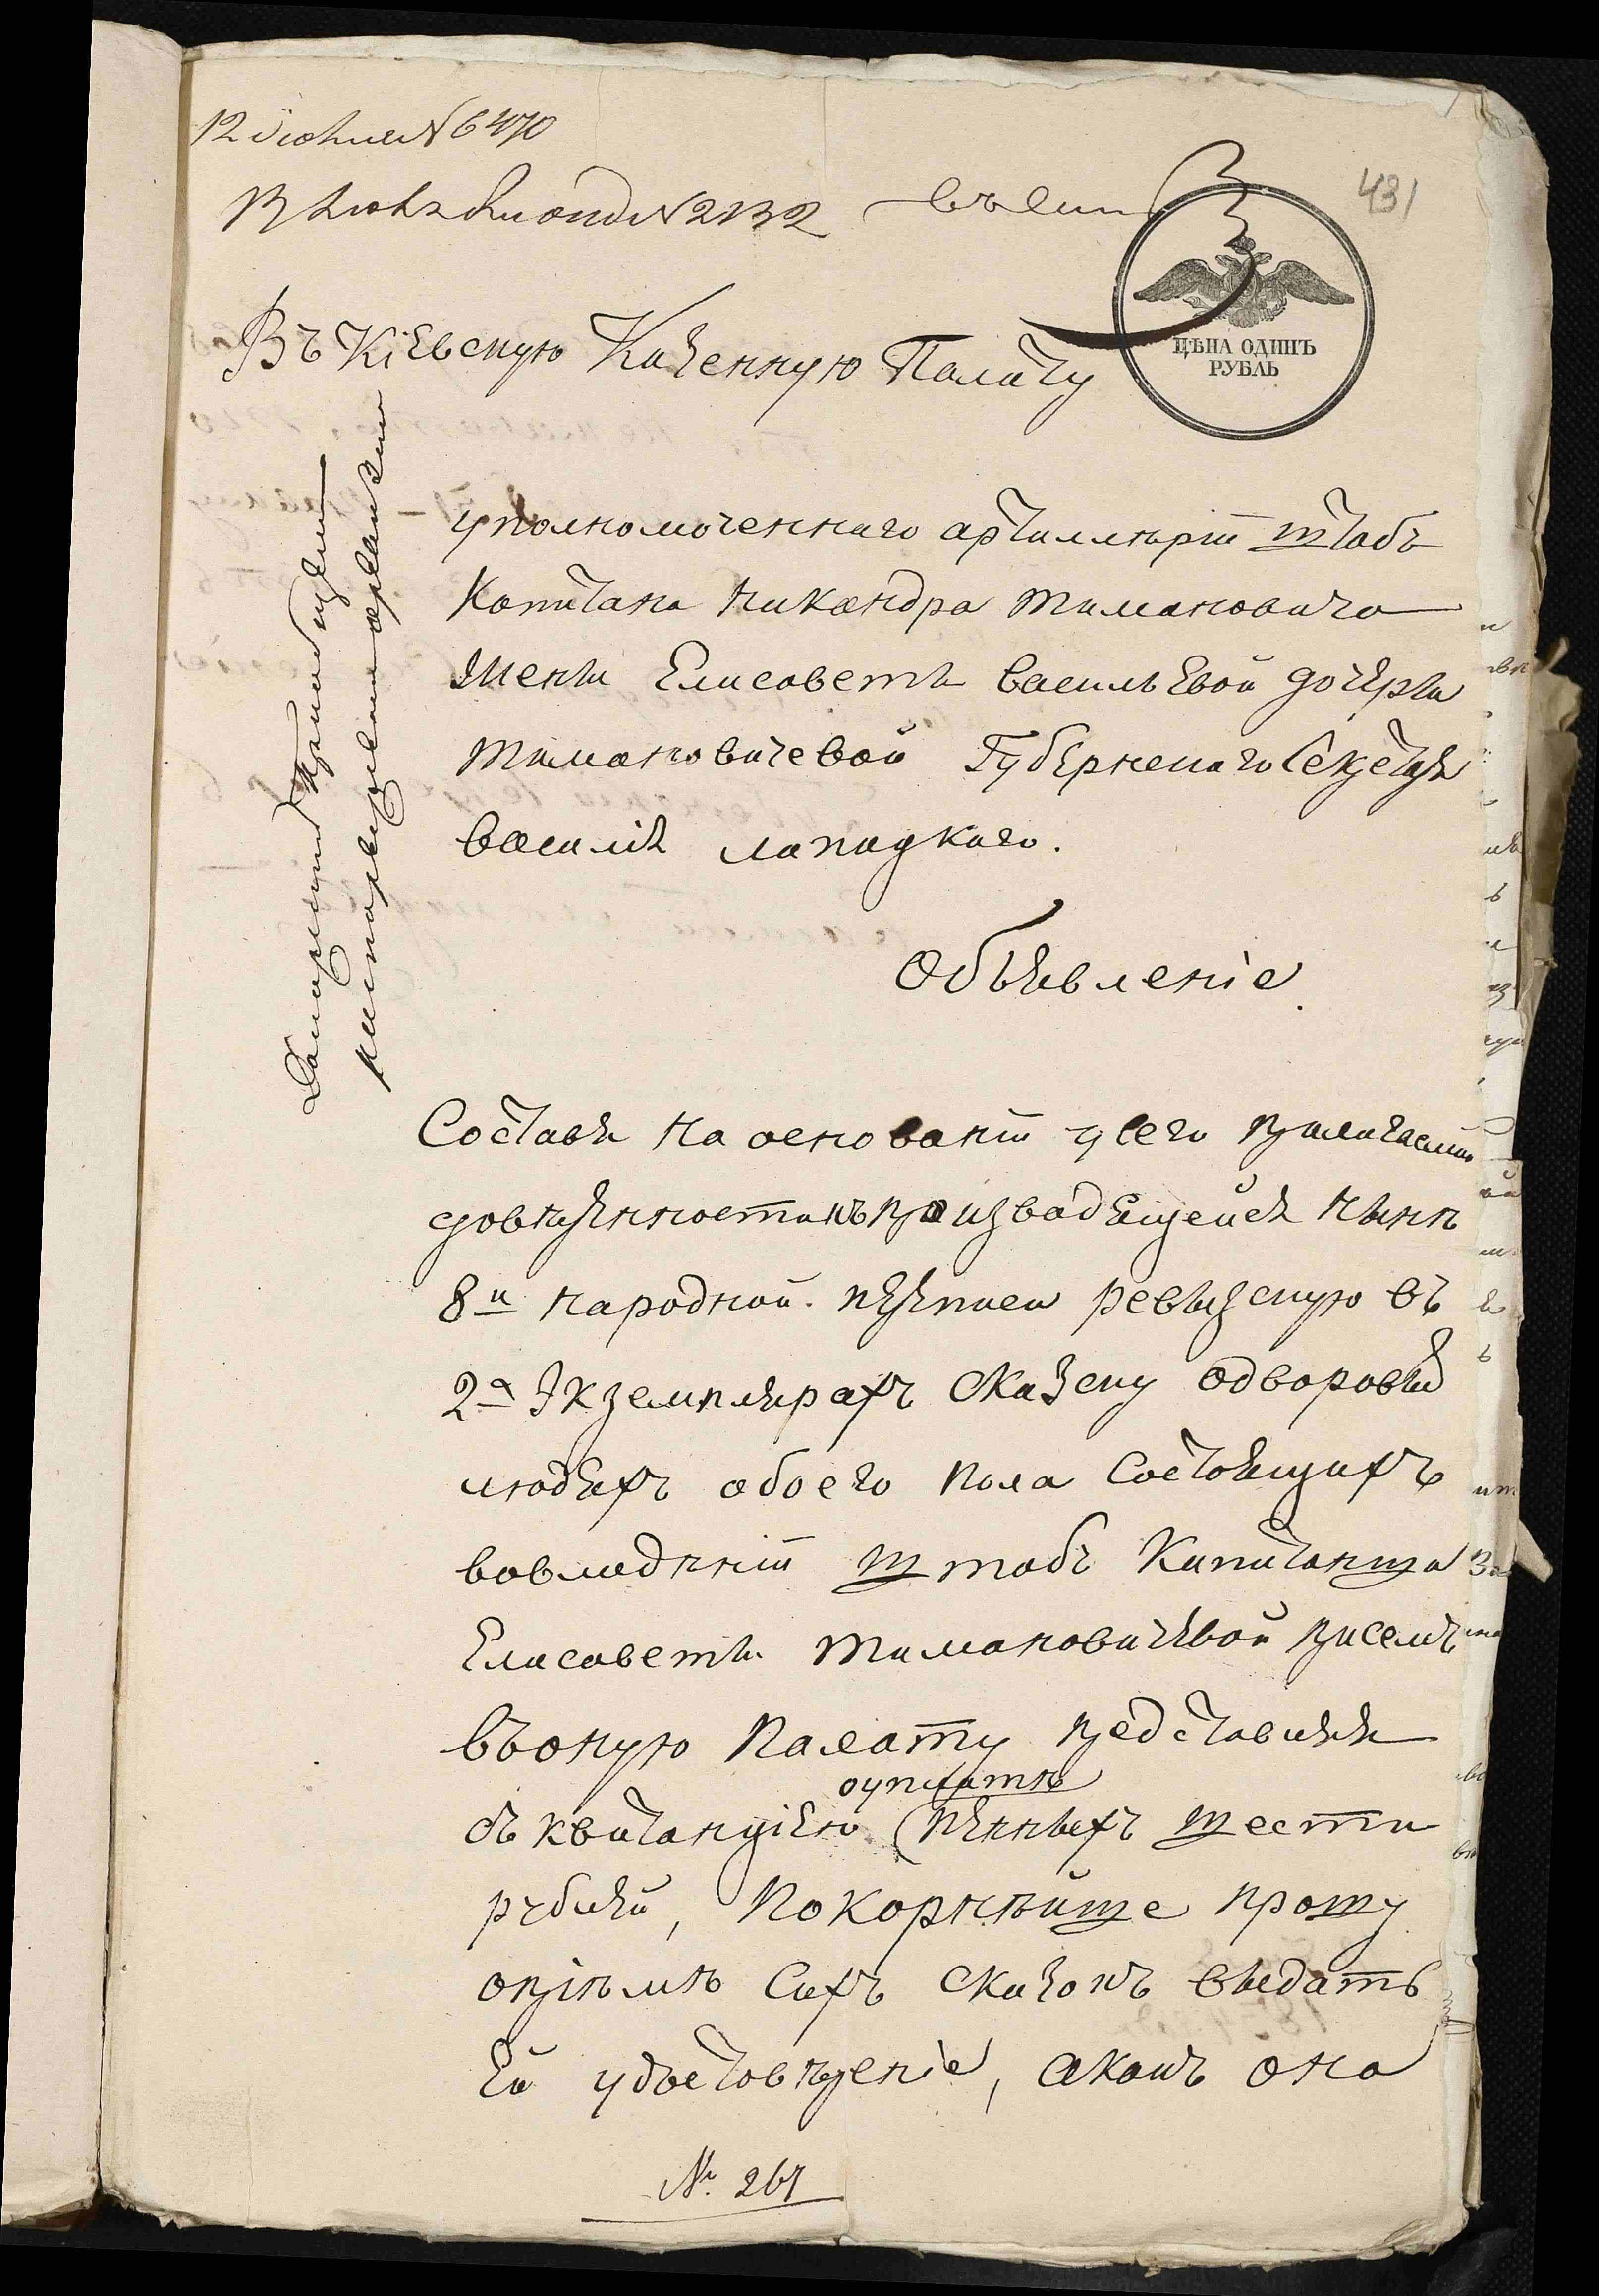 12 Июня N 6470
N 2132
431
Въ Кіевскую Казенную Палату
ЦѢНА ОДИНЪ
РУБЛЬ
уполномоченнаго артиллеріи штабъ
Капитана Никандра Тимановича
жены Елисаветы васильевой дочери
Тимановичевой Губернскаго Секретаря
василія лапицкаго.
Объявленіе
Составя на основаніи у сего прилагаемой
довѣренности къ производящейся нынѣ
8й народной переписи ревизскую въ
2х Экземплярахъ Сказку одворовыхъ
людехъ обоего пола Состоящихъ
вовладѣніи штабъ Капитанши
Елисаветы Тимановичевой присемъ
въоную Палату представляя
оуплатѣ
съ квитанціею пѣнныхъ шести
рублей, Покорнѣйше прошу
опріемѣ Сихъ Сказокъ выдать
Ей удостовѣреніе, акакъ она
№ 261